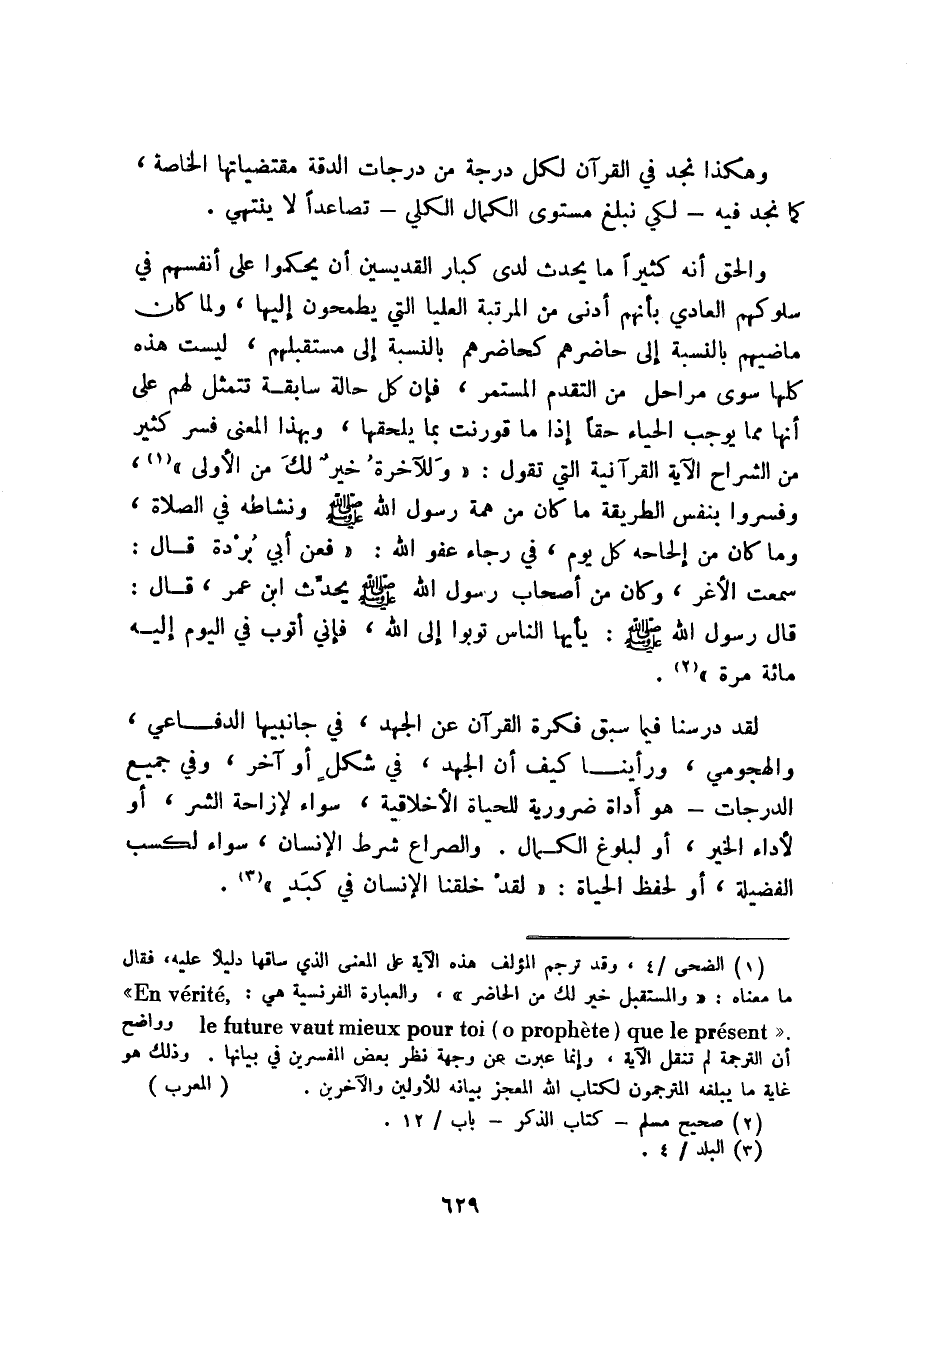 وهكذا نجد في القرآن لكل درجة من درجات الدقة مقتضياتها الخاصة ،
كما نجد فيه – لكي نبلغ مستوى الكمال الكلي – تصاعداً لا ينتهي .
والحق أنه كثيراً ما يحدث لدى كبار القديسين أن يحكموا على أنفسهم في
سلوكهم العادي بأنهم أدنى من المرتبة العليا التي يطمحون إليها ، ولما كان
ماضيهم بالنسبة إلى حاضرهم كحاضرهم بالنسبة إلى مستقبلهم ، ليست هذه
كلها سوى مراحل من التقدم المستمر ، فإن كل حالة سابقة تتمثل لهم على
أنها مما يوجب الحياء حقاً إذا ما قورنت بما يلحقها ، وبهذا المعنى فسر كثير
من الشراح الآية القرآنية التي تقول : « وَللآخرةُ خيرٌ لكَ من الأولى »(١) ،
وفسروا بنفس الطريقة ما كان من همة رسول الله ﷺ ونشاطه في الصلاة ،
وما كان من إلحاحه كل يوم ، في رجاء عفو الله : « فعن أبي بُرْدة قال :
سمعت الأغر ، وكان من أصحاب رسول الله ﷺ يحدّث ابن عمر ، قال :
قال رسول الله ﷺ : يأيها الناس توبوا إلى الله ، فإني أتوب في اليوم إليه
مائة مرة »(٢) .
لقد درسنا فيما سبق فكرة القرآن عن الجهد ، في جانبيها الدفاعي ،
والهجومي ، ورأينا كيف أن الجهد ، في شكلٍ أو آخر ، وفي جميع
الدرجات – هو أداة ضرورية للحياة الأخلاقية ، سواء لإزاحة الشر ، أو
لأداء الخير ، أو لبلوغ الكمال . والصراع شرط الإنسان ، سواء لكسب
الفضيلة ، أو لحفظ الحياة : « لقدْ خلقنا الإنسان في كبَدٍ »(٣) .
(١) الضحى /٤ ، وقد ترجم المؤلف هذه الآية على المعنى الذي ساقها دليلاً عليه، فقال
ما معناه : « والمستقبل خير لك من الحاضر » ، والعبارة الفرنسية هي : «En vérité,
le future vaut mieux pour toi (o prophète) que le présent ». وواضح
أن الترجمة لم تنقل الآية ، وإنما عبرت عن وجهة نظر بعض المفسرين في بيانها . وذلك هو
غاية ما يبلغه المترجمون لكتاب الله المعجز بيانه للأولين والآخرين . ( المعرب )
(٢) صحيح مسلم – كتاب الذكر – باب / ١٢ .
(٣) البلد / ٤ .
٦٢٩